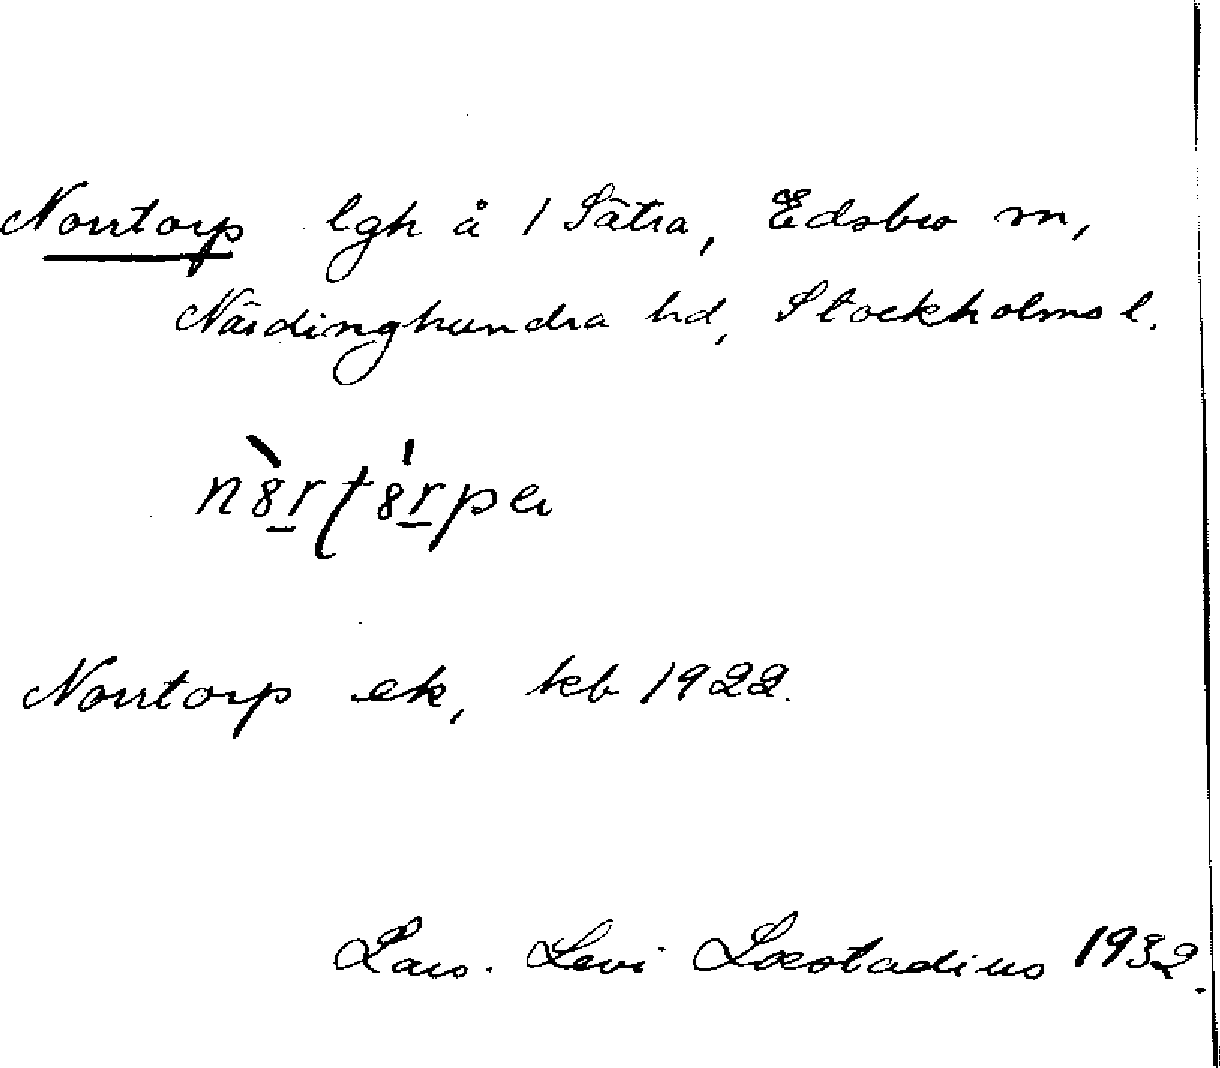 Norrtorp lgh å 1 Sätra, Edsbro sn,
Närdinghundra hd, Stockholms l.
n8̀rt8́rpa
Norrtorp ek, kb 1922.
Lars. Levi Læstadius 1932.